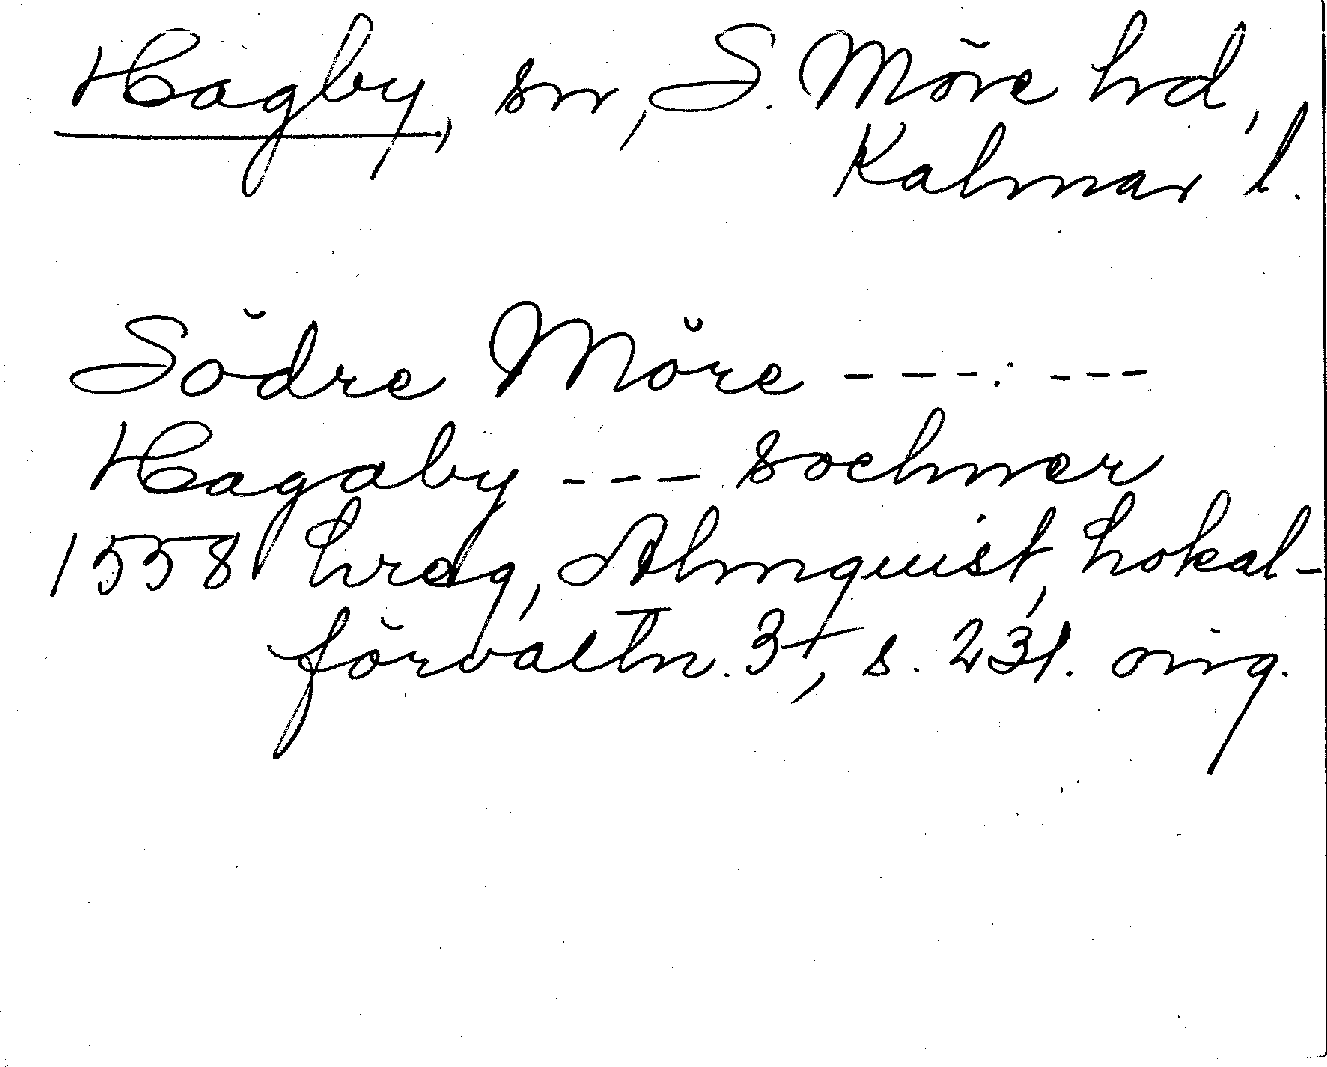 Hagby, sn, S. Möre hd,
Kalmar l.
Södre Möre - - - - : - - -
Hagaby - - - sochner
1558 hreg, Almquist, Lokal-
förvaltn. 3, s. 231. orig.